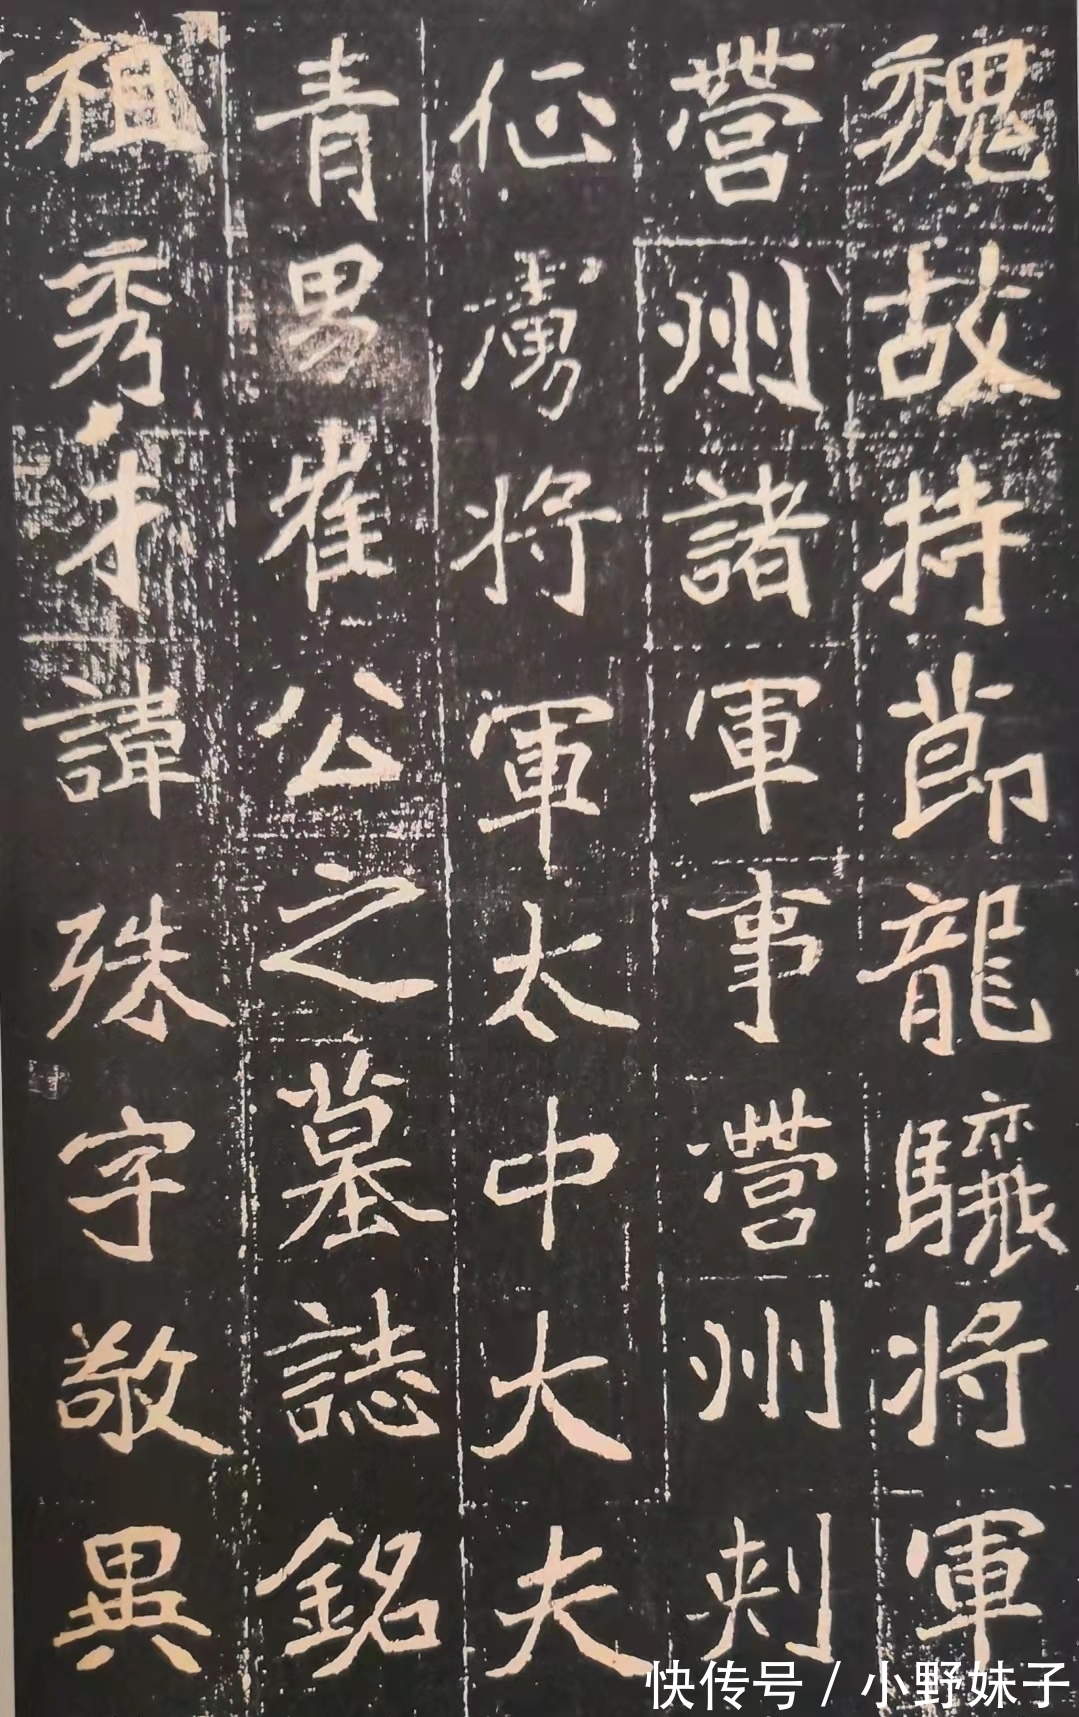 魏故持節龍驤將軍
營州諸軍事營州刺
征虜將軍太中大夫
青男崔公之墓誌銘
祖秀才諱殊字敬異
快传号 / 小野妹子